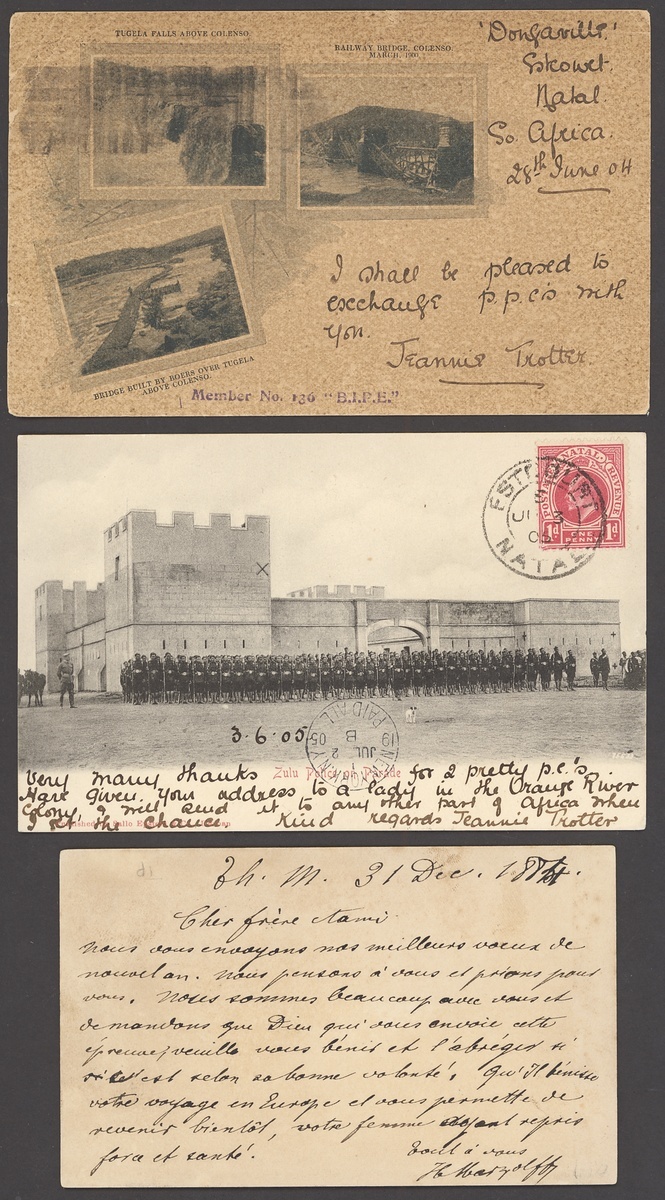 TUGELA FALLS ABOVE COLENSO.
RAILWAY BRIDGE, COLENSO.
MARCH, 1900.
BRIDGE BUILT BY BOERS OVER TUGELA
ABOVE COLENSO.
'Dongaville.'
Eskowet.
Natal.
So. Africa.
28th June 04
I shall be pleased to
exchange p.p.c's with
you.
Jeannie Trotter.
Member No. 136 "B.I.P.E."
NATAL
POSTAGE REVENUE
1d ONE PENNY 1d
NATAL
3.6.05
NEW YORK, N.Y.
PAID ALL
JUL 2
05
Zulu Police on Parade
Very many thanks for 2 pretty p.c.'s
Have given your address to a lady in the Orange River
Colony, I will send it to any other part of Africa when
I get the chance Kind regards Jeannie Trotter
Th. M. 31 Dec.
Cher frère & ami
Nous vous envoyons nos meilleurs voeux de
nouvel an. Nous pensons à vous et prions pour
vous. Nous sommes beaucoup avec vous et
demandons que Dieu qui vous envoie cette
épreuve, veuille vous bénir et l'abréger si
c'est selon sa bonne volonté. Qu'Il bénisse
votre voyage en Europe et vous permette de
revenir bientôt, votre femme ayant repris
force et santé.
Tout à vous
H. Marzolff